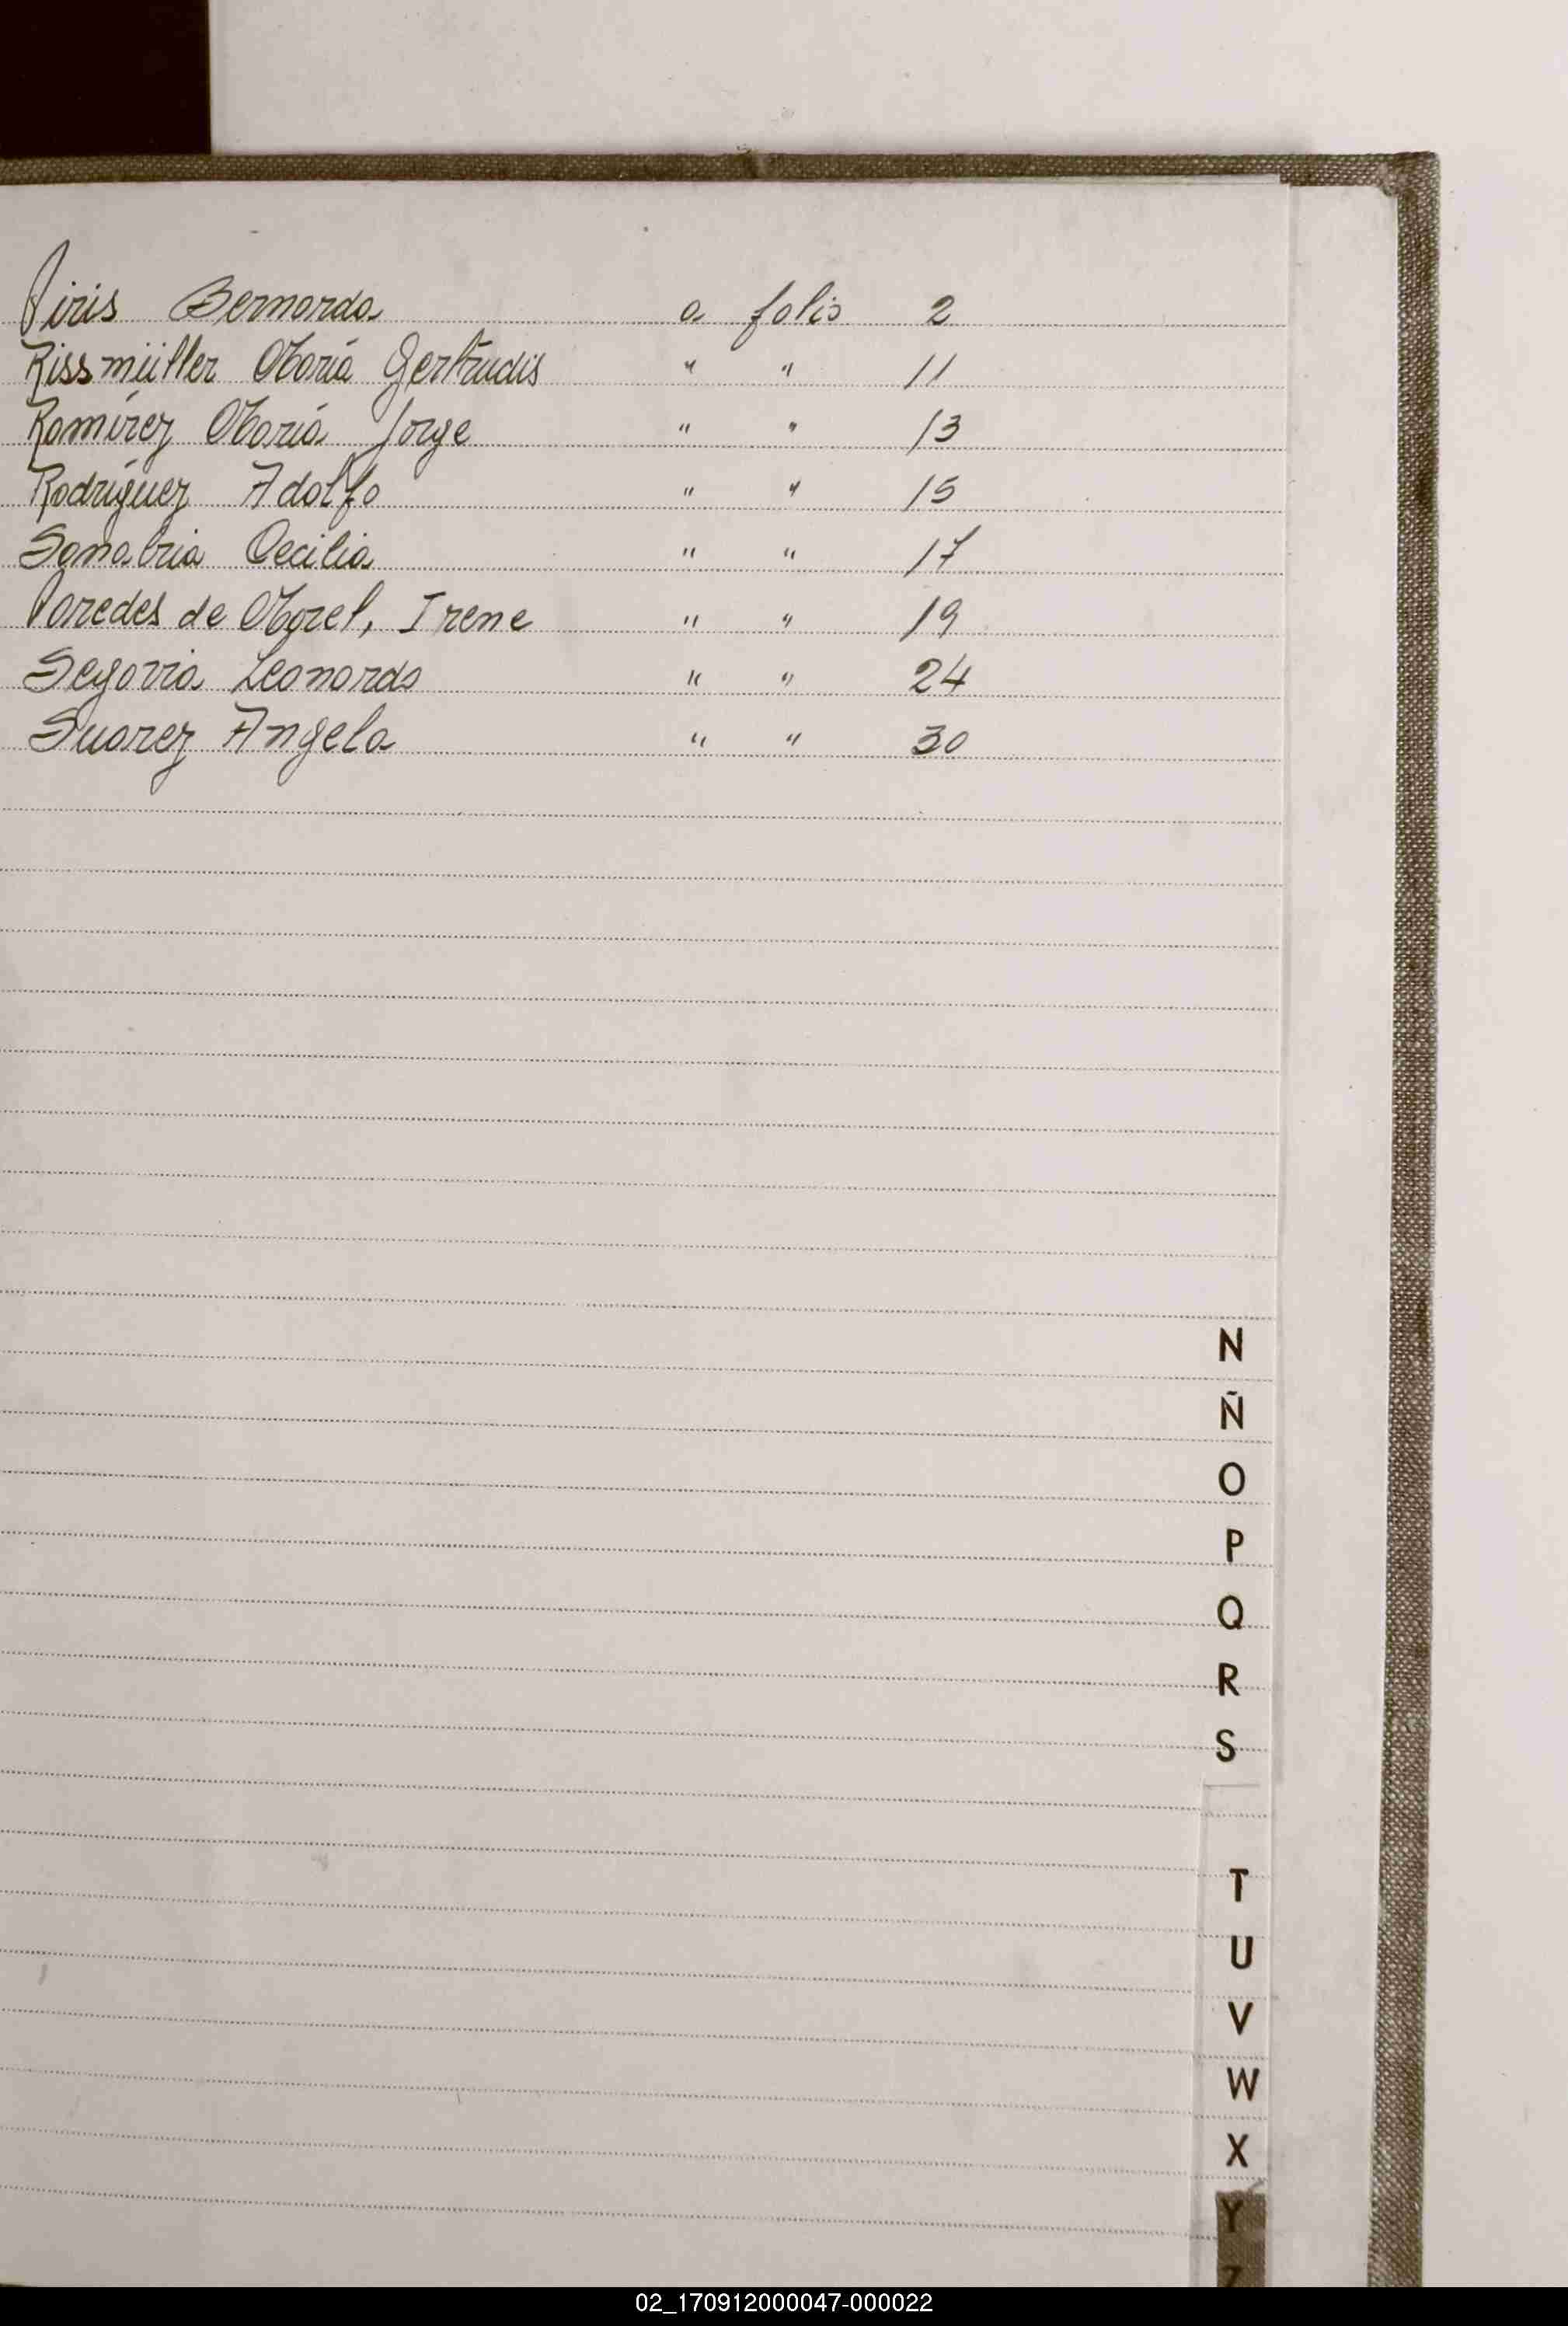 Piris Bernarda a folio 2
Rissmüller María Gertrudis " " 11
Ramírez María Jorge " " 13
Rodríguez Adolfo " " 15
Sanabria Cecilia " " 17
Paredes de Morel, Irene " " 19
Segovia Leonardo " " 24
Suarez Angela " " 30
N
Ñ
O
P
Q
R
S
T
U
V
W
X
Y
Z
02_170912000047-000022